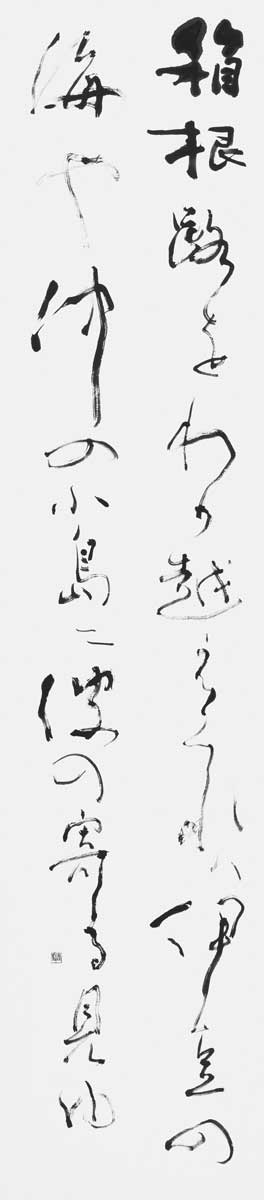 箱根路をわか越えくれハ伊豆の
海や沖の小島ニ波の寄る見ゆ